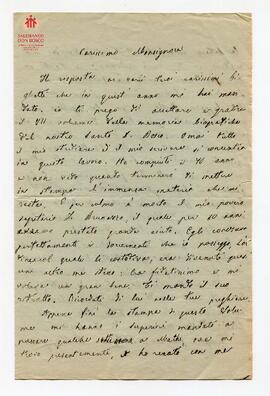 SALESIANOS
DON BOSCO
Carissimo Monsignore
In risposta ai varii tuoi carissimi bi-
glietti che in quest'anno mi hai man-
dato, io ti prego di accettare e gradire
il VII volume delle memorie biografiche
del nostro Santo D. Bosco. Omai tutto
il mio studiare e il mio scrivere si concentra
in questo lavoro. Ho compiuti i 70 anni
e non vedo quando terminerò di mettere
in stampa l'immensa materia che mi
resta. E per colmo è morto il mio povero
segretario D. il quale per 10 anni
avevami prestato grande aiuto. Egli conosceva
perfettamente i documenti che io posseggo,
quali li costodiva, era divenuto quasi
un altro me stesso: era fidatissimo e mi
voleva un gran bene. Ti mando il suo
ritratto. Ricordati di lui nelle tue preghiere.
Appena finì la stampa di questo volu-
me mi hanno i superiori mandato a
passare qualche settimana a ove mi
trovo presentemente, e ho recato con me